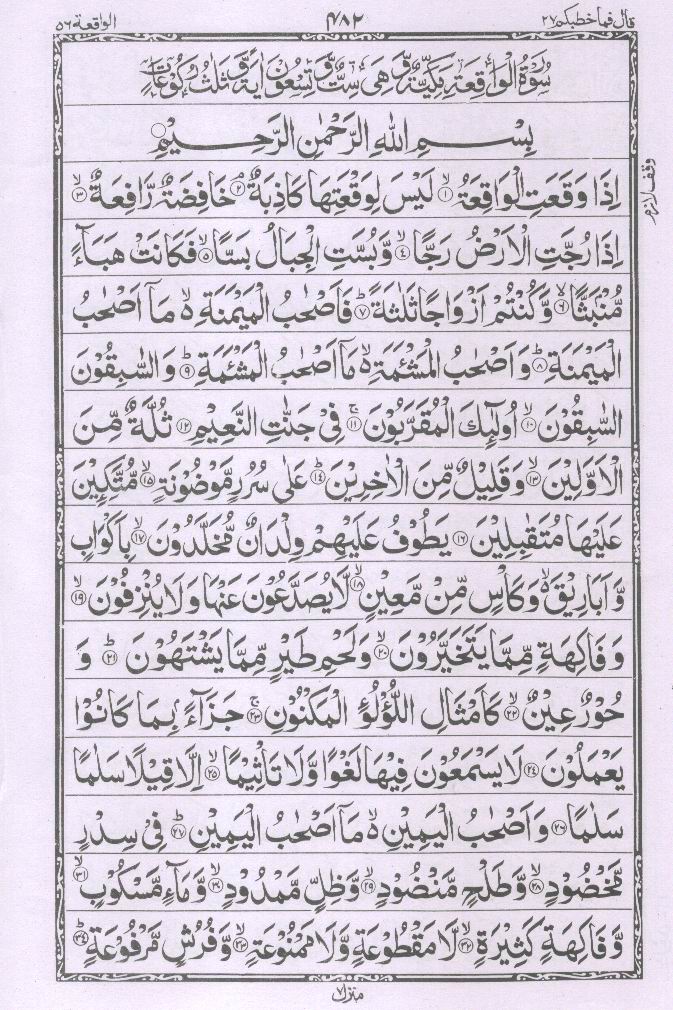 قال فما خطبكم ٢٧
٤٨٢
الواقعة ٥٦
سُوْرَةُ الْوَاقِعَةِ مَكِّيَّةٌ وَّهِىَ سِتٌّ وَّتِسْعُوْنَ اٰيَةً وَّثَلٰثُ رُكُوْعَاتٍ
بِسْمِ اللهِ الرَّحْمٰنِ الرَّحِيْمِ ○
اِذَا وَقَعَتِ الْوَاقِعَةُ ۙ‏﴿۱﴾ لَيْسَ لِوَقْعَتِهَا كَاذِبَةٌ ۘ‏﴿۲﴾ خَافِضَةٌ رَّافِعَةٌ ۙ‏﴿۳﴾
وقف لازم
اِذَا رُجَّتِ الْاَرْضُ رَجًّا ۙ‏﴿۴﴾ وَّبُسَّتِ الْجِبَالُ بَسًّا ۙ‏﴿۵﴾ فَكَانَتْ هَبَآءً
مُّنْۢبَثًّا ۙ‏﴿۶﴾ وَّكُنْتُمْ اَزْوَاجًا ثَلٰثَةً ؕ‏﴿۷﴾ فَاَصْحٰبُ الْمَيْمَنَةِ ۙ۬ مَاۤ اَصْحٰبُ
الْمَيْمَنَةِ ؕ‏﴿۸﴾ وَاَصْحٰبُ الْمَشْـَٔمَةِ ۙ۬ مَاۤ اَصْحٰبُ الْمَشْـَٔمَةِ ؕ‏﴿۹﴾ وَالسّٰبِقُوْنَ
السّٰبِقُوْنَ ۙ‏﴿۱۰﴾ اُولٰٓئِكَ الْمُقَرَّبُوْنَ ۚ‏﴿۱۱﴾ فِىْ جَنّٰتِ النَّعِيْمِ ‏﴿۱۲﴾ ثُلَّةٌ مِّنَ
الْاَوَّلِيْنَ ۙ‏﴿۱۳﴾ وَقَلِيْلٌ مِّنَ الْاٰخِرِيْنَ ؕ‏﴿۱۴﴾ عَلٰى سُرُرٍ مَّوْضُوْنَةٍ ۙ‏﴿۱۵﴾ مُّتَّكِـِٕيْنَ
عَلَيْهَا مُتَقٰبِلِيْنَ ‏﴿۱۶﴾ يَطُوْفُ عَلَيْهِمْ وِلْدَانٌ مُّخَلَّدُوْنَ ۙ‏﴿۱۷﴾ بِاَكْوَابٍ
وَّاَبَارِيْقَ ۙ۬ وَكَاْسٍ مِّنْ مَّعِيْنٍ ۙ‏﴿۱۸﴾ لَّا يُصَدَّعُوْنَ عَنْهَا وَلَا يُنْزِفُوْنَ ۙ‏﴿۱۹﴾
وَفَاكِهَةٍ مِّمَّا يَتَخَيَّرُوْنَ ۙ‏﴿۲۰﴾ وَلَحْمِ طَيْرٍ مِّمَّا يَشْتَهُوْنَ ؕ‏﴿۲۱﴾ وَ
حُوْرٌ عِيْنٌ ۙ‏﴿۲۲﴾ كَاَمْثَالِ اللُّؤْلُؤِ الْمَكْنُوْنِ ۚ‏﴿۲۳﴾ جَزَآءًۢ بِمَا كَانُوْا
يَعْمَلُوْنَ ‏﴿۲۴﴾ لَا يَسْمَعُوْنَ فِيْهَا لَغْوًا وَّلَا تَاْثِيْمًا ۙ‏﴿۲۵﴾ اِلَّا قِيْلًا سَلٰمًا
سَلٰمًا ‏﴿۲۶﴾ وَاَصْحٰبُ الْيَمِيْنِ ۙ۬ مَاۤ اَصْحٰبُ الْيَمِيْنِ ؕ‏﴿۲۷﴾ فِىْ سِدْرٍ
مَّخْضُوْدٍ ۙ‏﴿۲۸﴾ وَّطَلْحٍ مَّنْضُوْدٍ ۙ‏﴿۲۹﴾ وَّظِلٍّ مَّمْدُوْدٍ ۙ‏﴿۳۰﴾ وَّمَآءٍ مَّسْكُوْبٍ ۙ‏﴿۳۱﴾
وَّفَاكِهَةٍ كَثِيْرَةٍ ۙ‏﴿۳۲﴾ لَّا مَقْطُوْعَةٍ وَّلَا مَمْنُوْعَةٍ ۙ‏﴿۳۳﴾ وَّفُرُشٍ مَّرْفُوْعَةٍ ؕ‏﴿۳۴﴾
منزل ٧